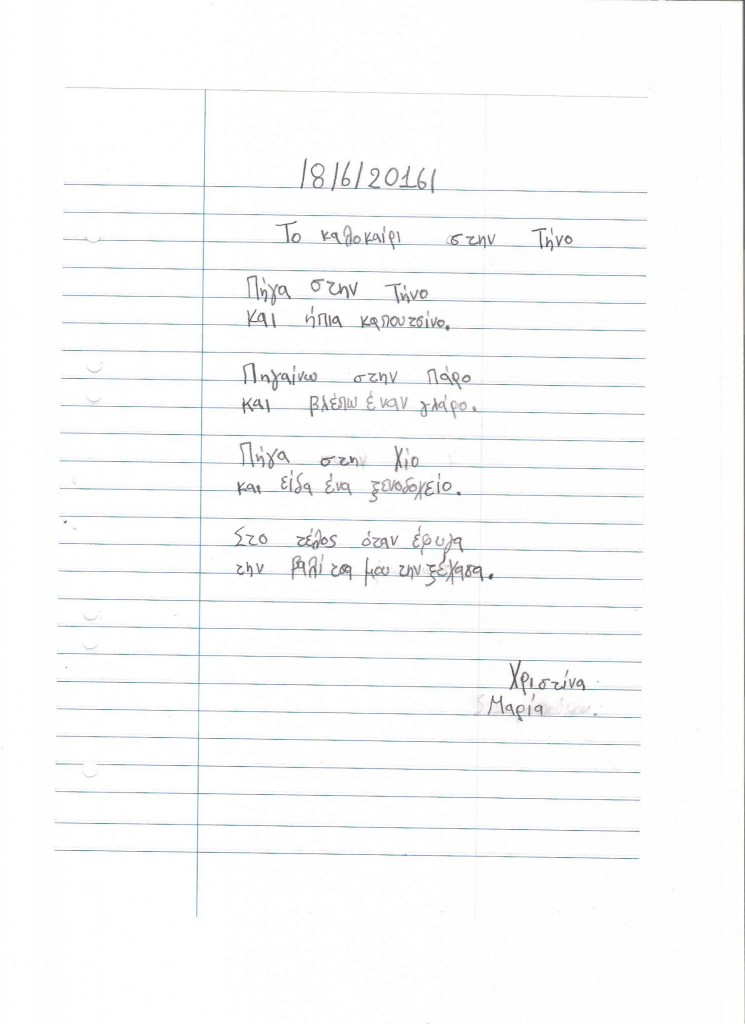 /8/6/2016/
Το καλοκαίρι στην Τήνο
Πήγα στην Τήνο
και ήπια καπουτσίνο.
Πηγαίνω στην Πάρο
και βλέπω έναν γλάρο.
Πήγα στην Χίο
και είδα ένα ξενοδοχείο.
Στο τέλος όταν έφυγα
την βαλίτσα μου την ξέχασα.
Χριστίνα
Μαρία